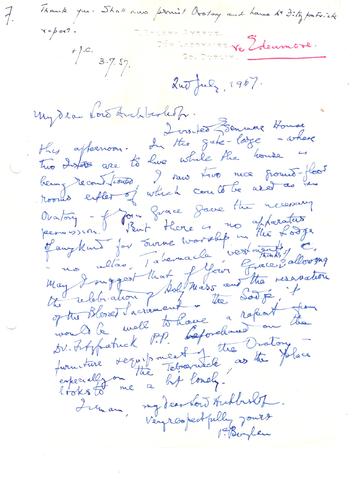 7.
Thank you. Shall now permit Oratory and have Dr Fitzpatrick
report.
+J.C.
3.7.57.
re Edenmore.
2nd July, 1957.
My dear Lord Archbishop,
I visited Edenmore House
this afternoon. In the gate-lodge - where
two are to live while the house is
being reconditioned I saw two nice ground-floor
rooms either of which could be used as an
Oratory - if Your Grace gave the necessary
permission. But there is no apparatus
of any kind for Divine worship in the Lodge
- no altar, Tabernacle vestments, &c.
May I suggest that if Your Grace thinks of allowing
the celebration of Holy Mass and the reservation
of the Blessed Sacrament in the Lodge, it
would be well to have a report from
Dr. Fitzpatrick P.P. beforehand on the
furniture & equipment of the Oratory -
especially on the Tabernacle, as the place
looks to me a bit lonely.
I remain, my dear Lord Archbishop,
very respectfully yours